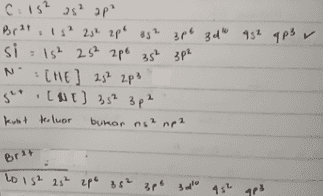 C : 1s² 2s² 2p²
Br²⁺ : 1s² 2s² 2p⁶ 3s² 3p⁶ 3d¹⁰ 4s² 4p³ ✓
Si = 1s² 2s² 2p⁶ 3s² 3p²
N⁻ : [HE] 2s² 2p³
S²⁺ : [NE] 3s² 3p²
kulit terluar bukan ns² np²
Br³⁺ :
↳ 1s² 2s² 2p⁶ 3s² 3p⁶ 3d¹⁰ 4s² 4p³